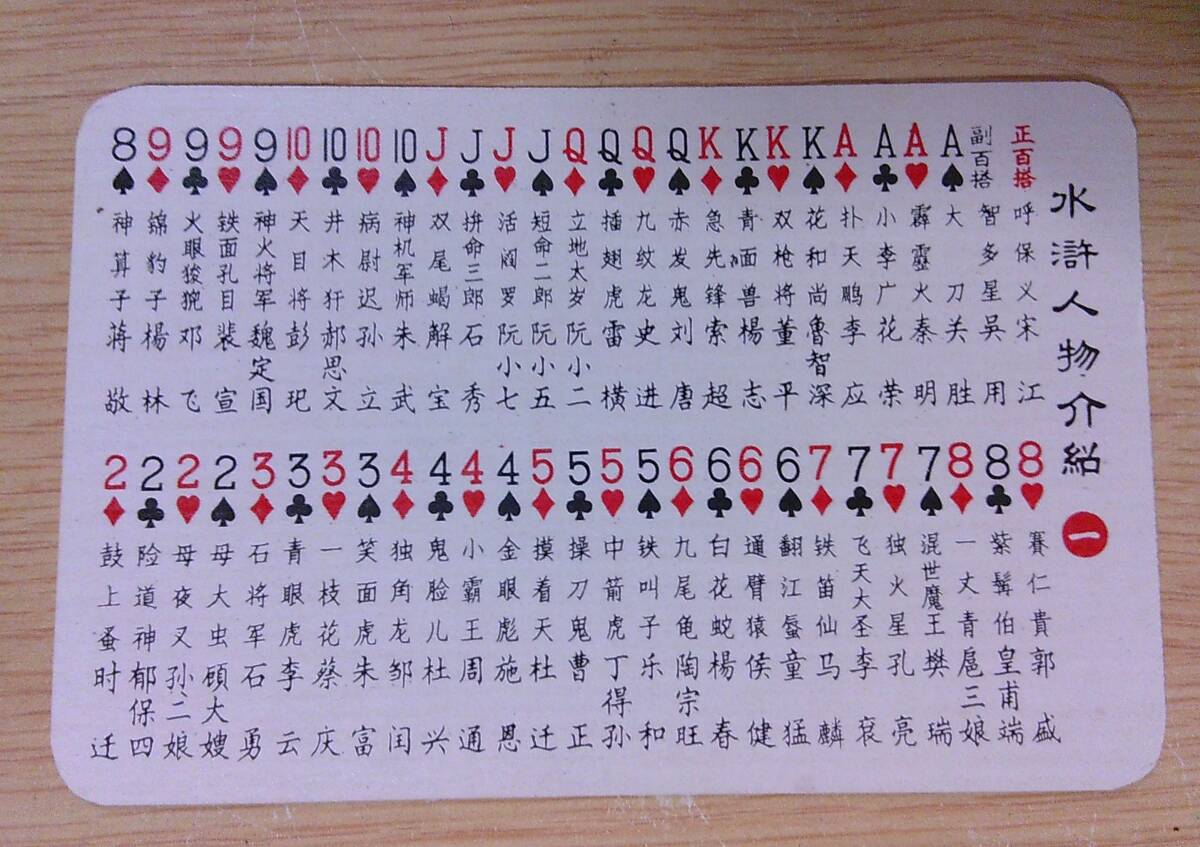 水滸人物介紹 一
正百搭 呼保义宋江
副百搭 智多星吳用
A♠ 大刀关胜
A♥ 霹靂火秦明
A♣ 小李广花荣
A♦ 扑天鹏李应
K♠ 花和尚魯智深
K♥ 双枪将董平
K♣ 青面兽楊志
K♦ 急先锋索超
Q♠ 赤发鬼刘唐
Q♥ 九纹龙史进
Q♣ 插翅虎雷横
Q♦ 立地太岁阮小二
J♠ 短命二郎阮小五
J♥ 活阎罗阮小七
J♣ 拚命三郎石秀
J♦ 双尾蝎解宝
10♠ 神机军师朱武
10♥ 病尉迟孙立
10♣ 井木犴郝思文
10♦ 天目将彭玘
9♠ 神火将军魏定国
9♥ 铁面孔目裴宣
9♣ 火眼狻猊邓飞
9♦ 锦豹子楊林
8♠ 神算子蒋敬
8♥ 賽仁貴郭盛
8♣ 紫髯伯皇甫端
8♦ 一丈青扈三娘
7♠ 混世魔王樊瑞
7♥ 独火星孔亮
7♣ 飞天大圣李衮
7♦ 铁笛仙马麟
6♠ 翻江蜃童猛
6♥ 通臂猿侯健
6♣ 白花蛇楊春
6♦ 九尾龟陶宗旺
5♠ 铁叫子乐和
5♥ 中箭虎丁得孙
5♣ 操刀鬼曹正
5♦ 摸着天杜迁
4♠ 金眼彪施恩
4♥ 小霸王周通
4♣ 鬼脸儿杜兴
4♦ 独角龙邹闰
3♠ 笑面虎朱富
3♥ 一枝花蔡庆
3♣ 青眼虎李云
3♦ 石将军石勇
2♠ 母大虫顾大嫂
2♥ 母夜叉孙二娘
2♣ 险道神郁保四
2♦ 鼓上蚤时迁